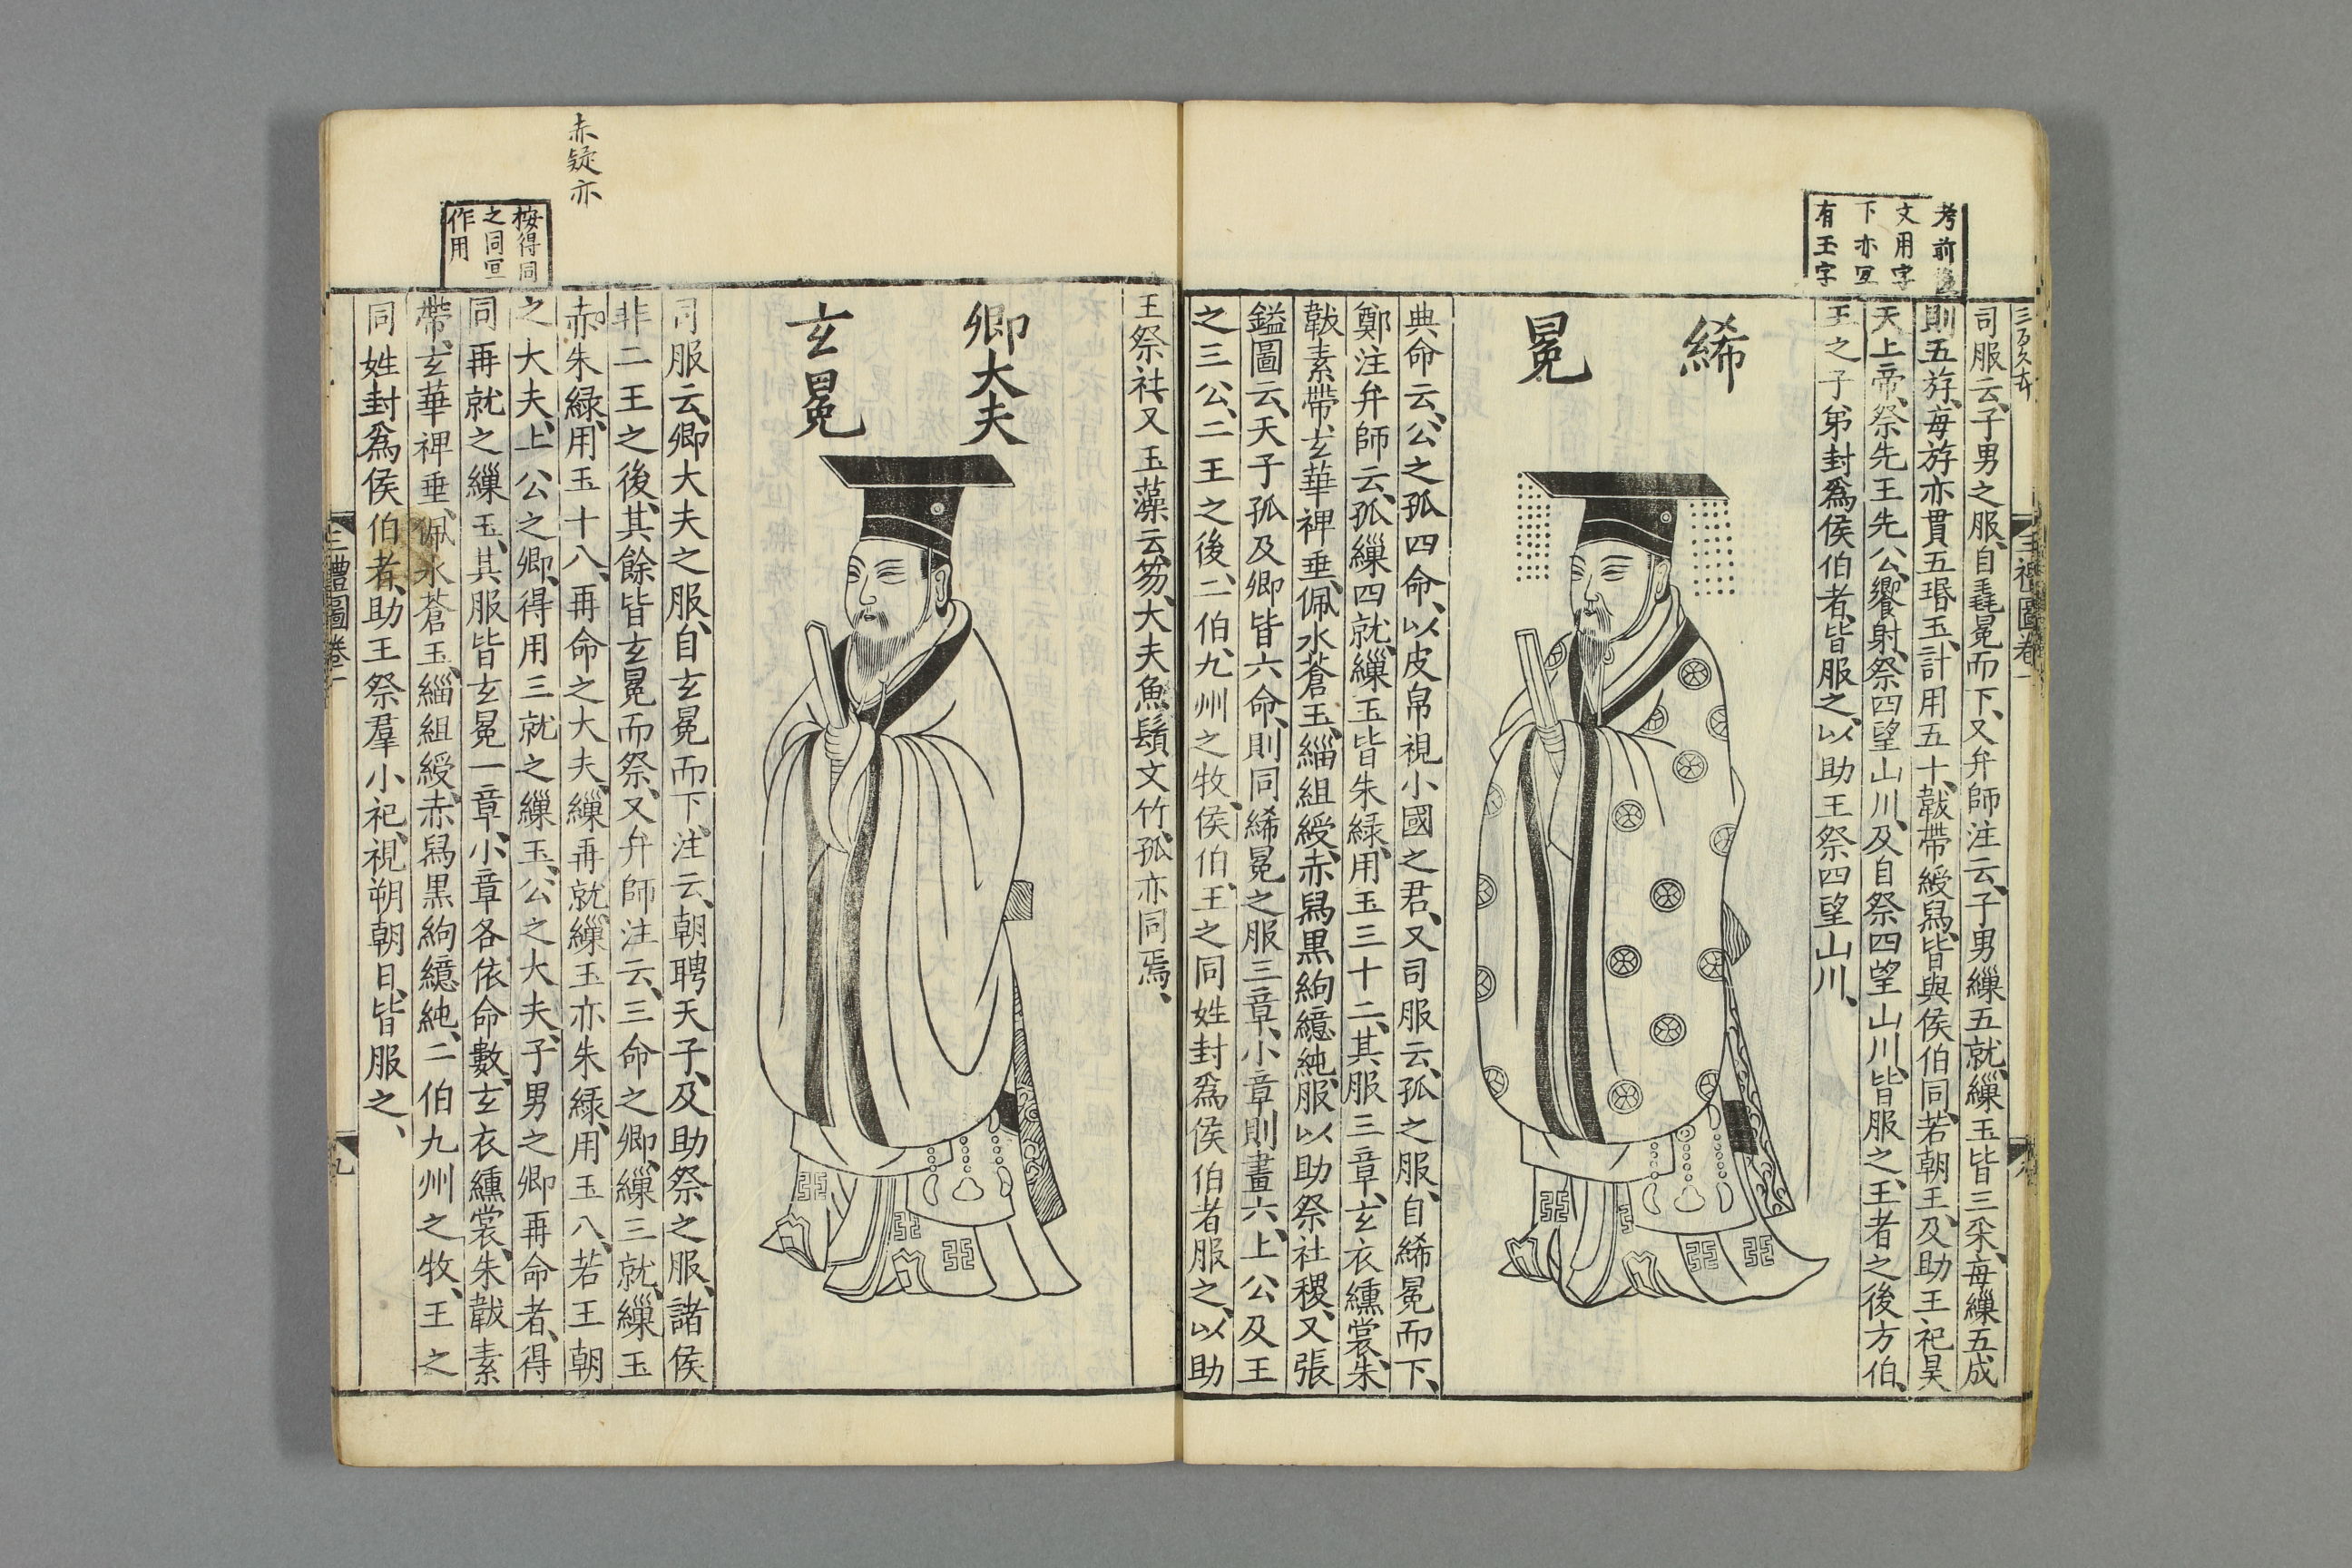 考前後
文用字
下亦宜
有玉字
司服云子男之服自毳冕而下又弁師注云子男繅五就繅玉皆三采每繅五成
則五斿每斿亦貫五瑉玉計用五十韍帶綬舄皆與侯伯同若朝王及助王祀昊
天上帝祭先王先公饗射祭四望山川及自祭四望山川皆服之王者之後方伯
王之子弟封爲侯伯者皆服之以助王祭四望山川
絺冕
典命云公之孤四命以皮帛視小國之君又司服云孤之服自絺冕而下
鄭注弁師云孤繅四就繅玉皆朱綠用玉三十二其服三章玄衣纁裳朱
韍素帶玄華裨垂佩水蒼玉緇組綬赤舄黒絇繶純服以助祭社稷又張
鎰圖云天子孤及卿皆六命則同絺冕之服三章小章則畫六上公及王
之三公二王之後二伯九州之牧侯伯王之同姓封爲侯伯者服之以助
三禮圖卷一
王祭社又玉藻云笏大夫魚鬚文竹孤亦同焉
卿大夫
玄冕
司服云卿大夫之服自玄冕而下注云朝聘天子及助祭之服諸侯
非二王之後其餘皆玄冕而祭又弁師注云三命之卿繅三就繅玉
赤朱綠用玉十八再命之大夫繅再就繅玉亦朱綠用玉八若王朝
之大夫上公之卿得用三就之繅玉公之大夫子男之卿再命者得
同再就之繅玉其服皆玄冕一章小章各依命數玄衣纁裳朱韍素
帶玄華裨垂佩水蒼玉緇組綬赤舄黒絇繶純二伯九州之牧王之
同姓封爲侯伯者助王祭羣小祀視朔朝日皆服之
赤疑亦
按得同
之同宜
作用
三禮圖卷一
九